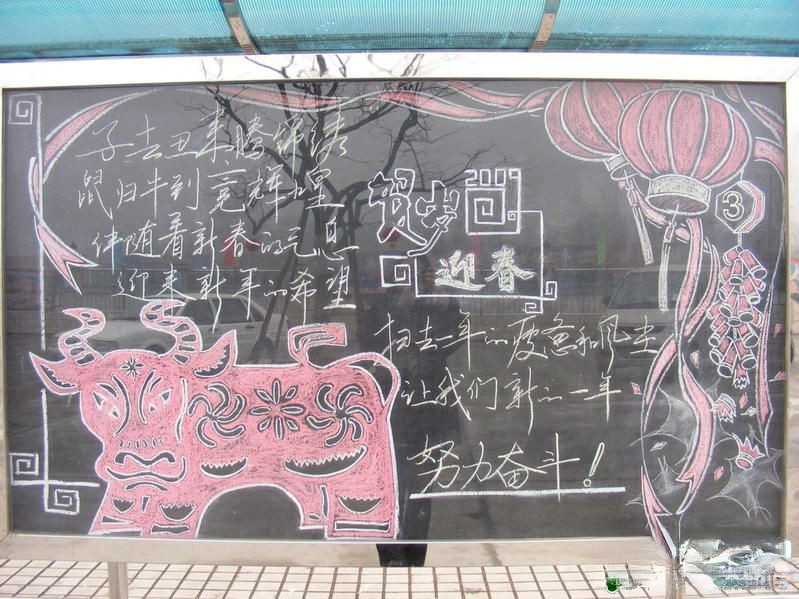 子去丑来腾锦绣
鼠归牛到竞辉煌
伴随着新春的气息
迎来新年的希望
贺岁
迎春
扫去一年的疲惫和风尘
让我们新的一年
努力奋斗！
3